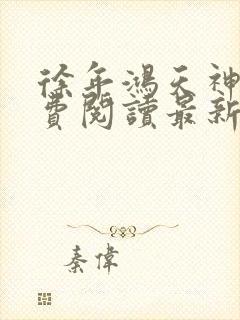 徐年鴻天神
費閱讀最新
秦偉